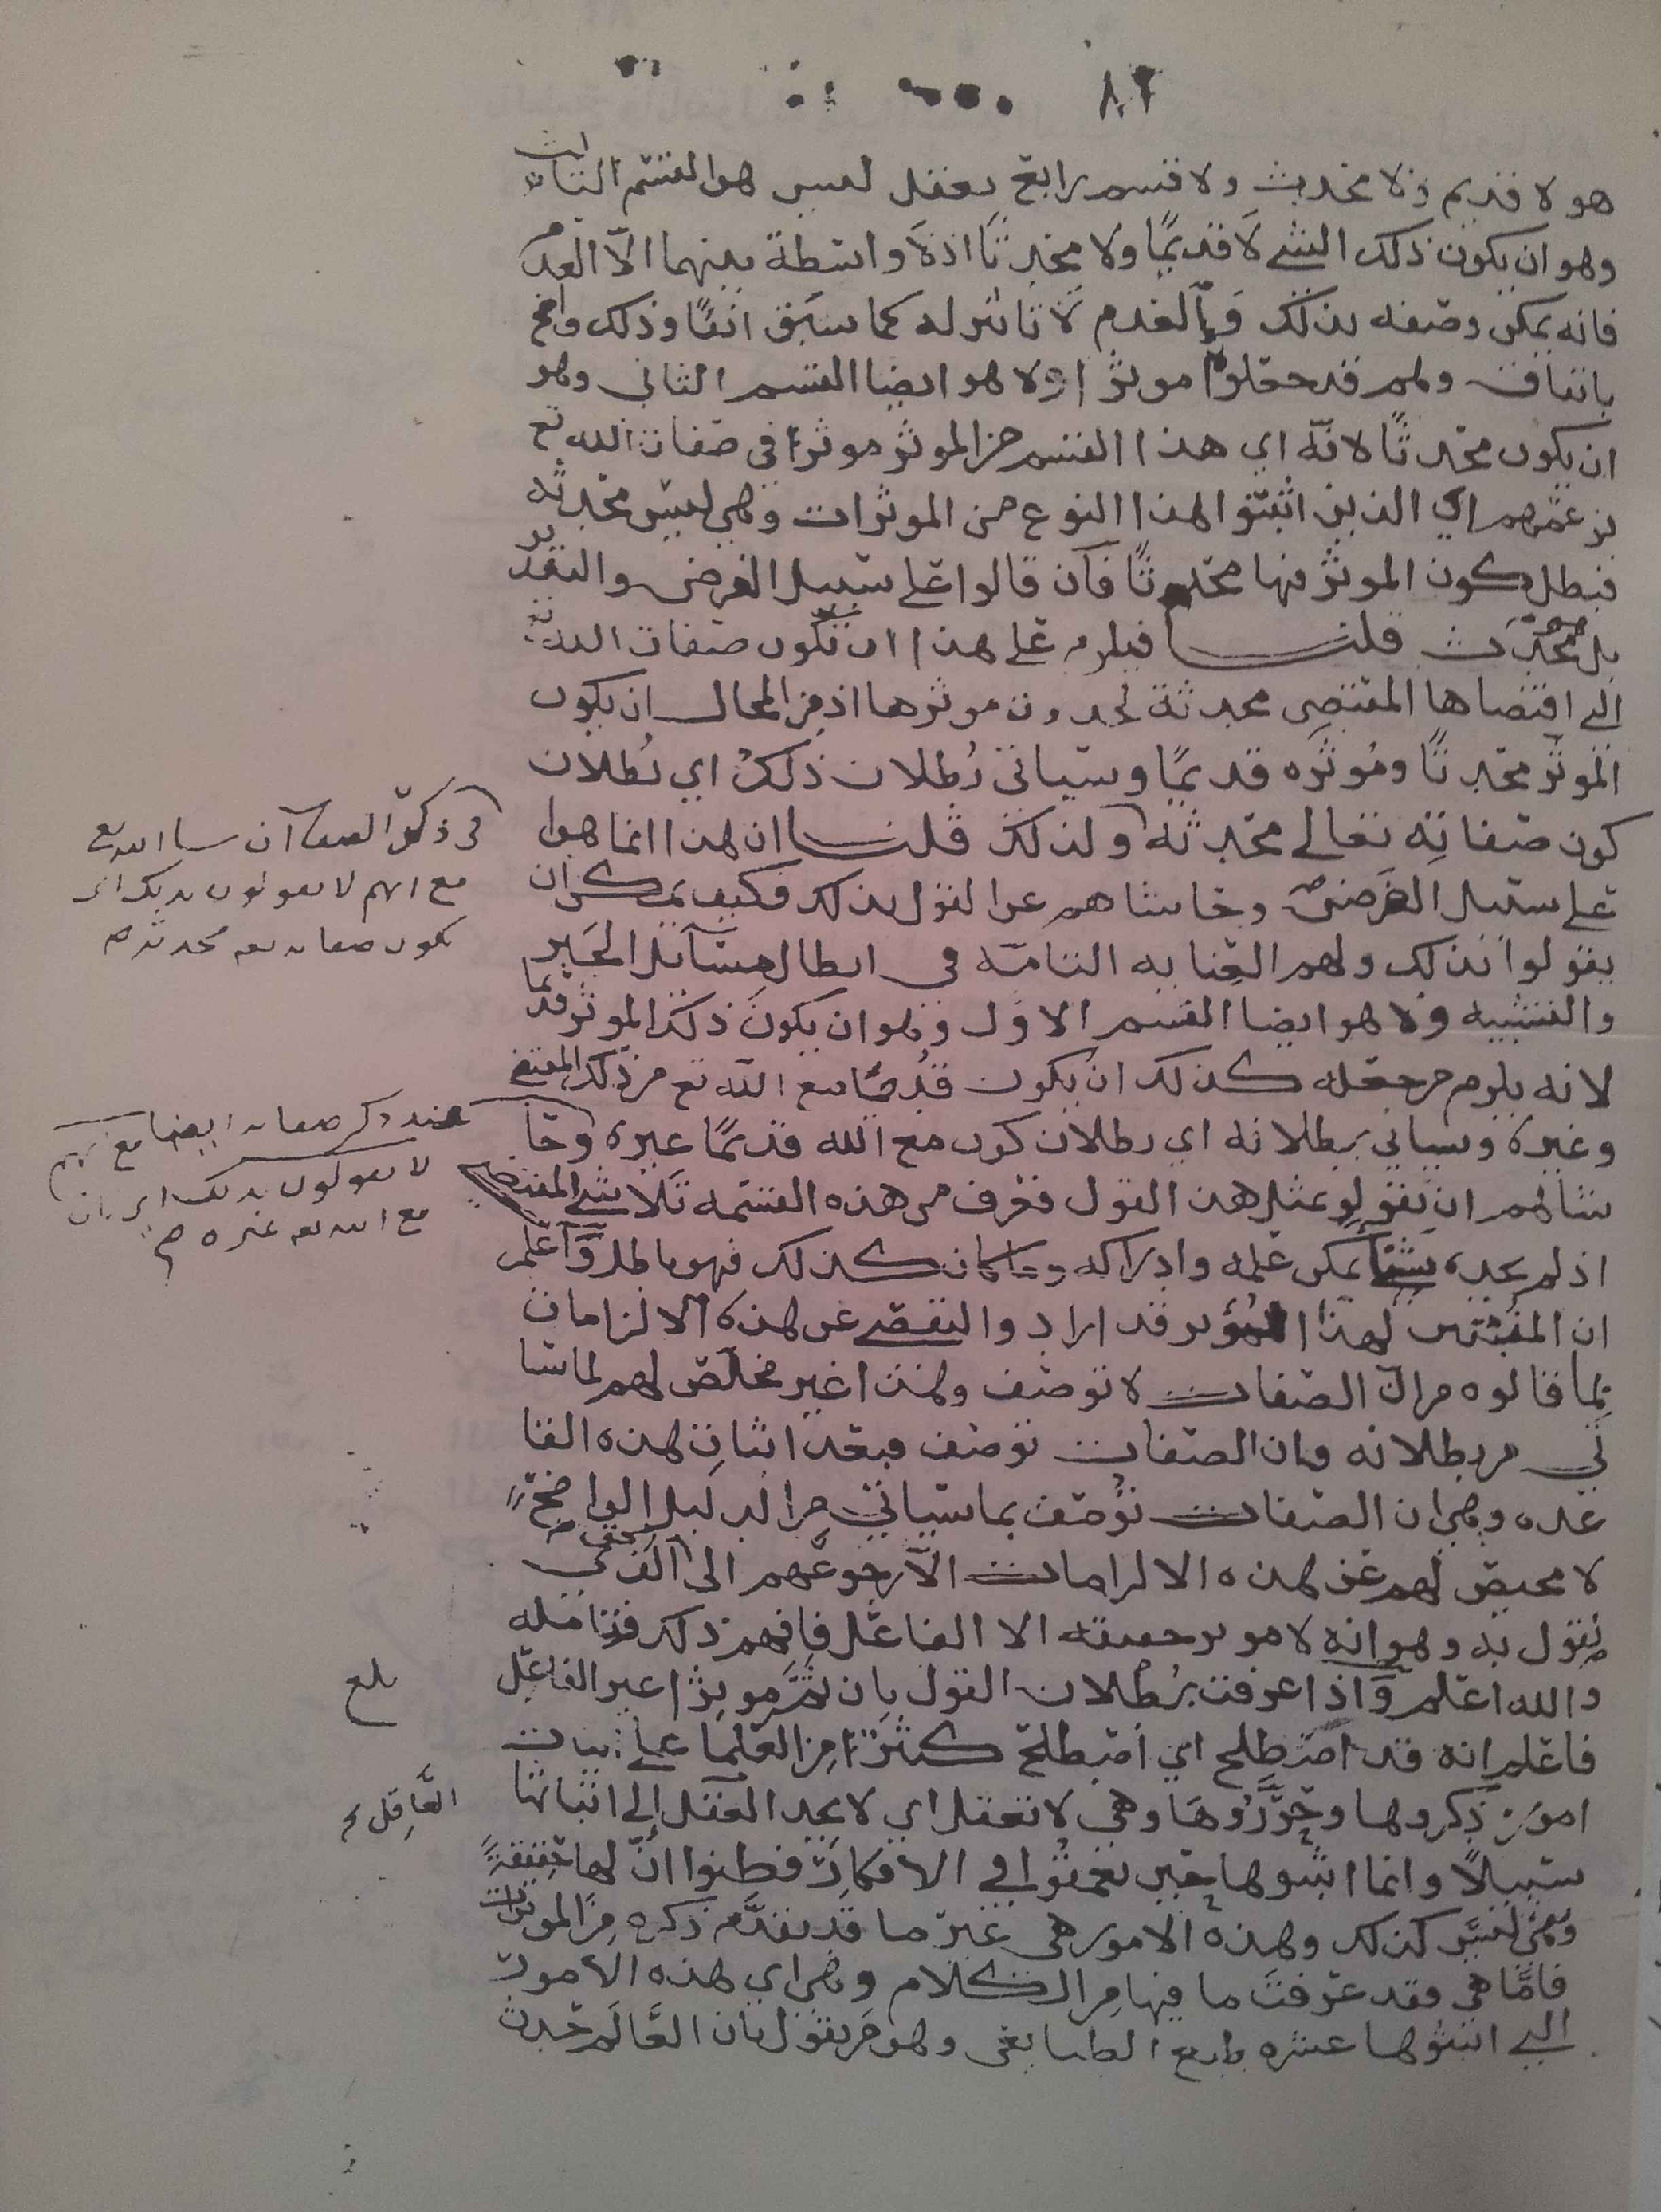 ٨٢
هو لا قديم ولا محدث ولا قسم رابع يعقل ليس هو القسم الثالث
وهو ان يكون ذلك الشي لا قديمًا ولا محدثًا اذ لا واسطة بينهما الا العدم
فانه يمكن وصفه بذلك والعدم لا تاثير له كما سبق انفًا وذلك واضح
باتفاق ولهم قد جعلوه موثرًا ولا هو ايضا القسم الثاني وهو
ان يكون محدثًا لانه اي هذا القسم من الموثر موثرًا في صفات الله تع
بزعمهم اي الذين اثبتوا لهذا النوع من الموثرات وهي ليس محدثه
فبطل كون الموثر فيها محدثًا فان قالوا على سبيل الفرض والتقدير
بل محدث قلنا فيلزم على هذا ان تكون صفات الله تع
التي اقتضاها المقتضى محدثة لحدوث موثرها اذ من المحال ان يكون
الموثر محدثًا وموثره قديمًا وسياتي بطلان ذلك اي بطلان
كون صفاته تعالى محدثه ولذلك قلنا ان هذا انما هو
على سبيل الفرض وحاشاهم عن القول بذلك فكيف يمكن ان
يقولوا بذلك ولهم العنايه التامة في ابطال مسائل الجبر
والتشبيه ولا هو ايضا القسم الاول وهو ان يكون ذلك الموثر قديما
لانه يلزم من جعله كذلك ان يكون قديمًا مع الله تع من ذلك المقتضي
وغيره وسياتي بطلانه اي بطلان كون مع الله قديمًا غيره وحا
شالهم ان يقولو بمثل هذا القول فعرف من هذه القسمه تلاشي المقتضي
اذ لم يجد شيئًا يمكن علمه وادراكه وما كان كذلك فهو باطل واعلم
ان المثبتين لهذا الموثر قد ارادوا التفصي عن هذه الالزامات
بما قالوه من ان الصفات لا توصف وهذا غير مخلص لهم لما سيا
تي من بطلانه وان الصفات توصف فبعد اثبات هذه القا
عده وهي ان الصفات توصف بما سياتي من الدليل الواضح
لا محيص لهم عن هذه الالزامات الا رجوعهم الى الحق الذي
نقول به وهو انه لا موثر حقيقه الا الفاعل فافهم ذلك فتامله
والله اعلم واذا عرفت بطلان القول بان ثم موثرًا غير الفاعل
فاعلم انه قد اصطلح اي اصطلح كثير من العلما على اثبات
امور ذكروها وحرروها وهي لا تعقل اي لا يجد العقل الى اثباتها
سبيلًا وانما اثبتوها حين تعمقوا في الافكار فظنوا ان لها حقيقةً
وهي ليس كذلك وهذه الامور هي غير ما قد تقدم ذكره من الموثرات
فاما هي فقد عرفت ما فيها من الكلام وهي اي هذه الامور
التي اثبتوها عشره طبع الطبايعي وهو من يقول بان العالم حدث
في ذكر
مع انهم لا يقولون بذلك اي
تكون صفاته تع محدثه صح
عند ذكر صفاته ايضا مع انهم
لا يقولون بذلك اي بان
مع الله تع غيره صح
بلغ
العاقل